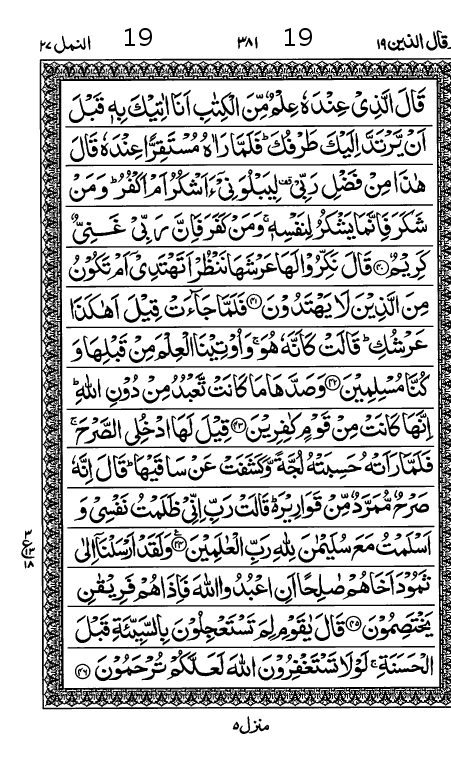 قال الذین ۱۹ 19 ۳۸۱ 19 النمل ۲۷
قَالَ الَّذِیْ عِنْدَهٗ عِلْمٌ مِّنَ الْكِتٰبِ اَنَا اٰتِیْكَ بِهٖ قَبْلَ
اَنْ یَّرْتَدَّ اِلَیْكَ طَرْفُكَ ؕ فَلَمَّا رَاٰهُ مُسْتَقِرًّا عِنْدَهٗ قَالَ
هٰذَا مِنْ فَضْلِ رَبِّیْ ۫ۖ لِیَبْلُوَنِیْۤ ءَاَشْكُرُ اَمْ اَكْفُرُ ؕ وَمَنْ
شَكَرَ فَاِنَّمَا یَشْكُرُ لِنَفْسِهٖ ۚ وَمَنْ كَفَرَ فَاِنَّ رَبِّیْ غَنِیٌّ
كَرِیْمٌ ۝۴۰ قَالَ نَكِّرُوْا لَهَا عَرْشَهَا نَنْظُرْ اَتَهْتَدِیْۤ اَمْ تَكُوْنُ
مِنَ الَّذِیْنَ لَا یَهْتَدُوْنَ ۝۴۱ فَلَمَّا جَآءَتْ قِیْلَ اَهٰكَذَا
عَرْشُكِ ؕ قَالَتْ كَاَنَّهٗ هُوَ ۚ وَاُوْتِیْنَا الْعِلْمَ مِنْ قَبْلِهَا وَ
كُنَّا مُسْلِمِیْنَ ۝۴۲ وَصَدَّهَا مَا كَانَتْ تَّعْبُدُ مِنْ دُوْنِ اللّٰهِ ؕ
اِنَّهَا كَانَتْ مِنْ قَوْمٍ كٰفِرِیْنَ ۝۴۳ قِیْلَ لَهَا ادْخُلِی الصَّرْحَ ۚ
فَلَمَّا رَاَتْهُ حَسِبَتْهُ لُجَّةً وَّكَشَفَتْ عَنْ سَاقَیْهَا ؕ قَالَ اِنَّهٗ
صَرْحٌ مُّمَرَّدٌ مِّنْ قَوَارِیْرَ ؕ۬ قَالَتْ رَبِّ اِنِّیْ ظَلَمْتُ نَفْسِیْ وَ
اَسْلَمْتُ مَعَ سُلَیْمٰنَ لِلّٰهِ رَبِّ الْعٰلَمِیْنَ ۝۴۴ وَلَقَدْ اَرْسَلْنَاۤ اِلٰی
ثَمُوْدَ اَخَاهُمْ صٰلِحًا اَنِ اعْبُدُوا اللّٰهَ فَاِذَا هُمْ فَرِیْقٰنِ
یَخْتَصِمُوْنَ ۝۴۵ قَالَ یٰقَوْمِ لِمَ تَسْتَعْجِلُوْنَ بِالسَّیِّئَةِ قَبْلَ
الْحَسَنَةِ ۚ لَوْلَا تَسْتَغْفِرُوْنَ اللّٰهَ لَعَلَّكُمْ تُرْحَمُوْنَ ۝۴۶
منزل ۵